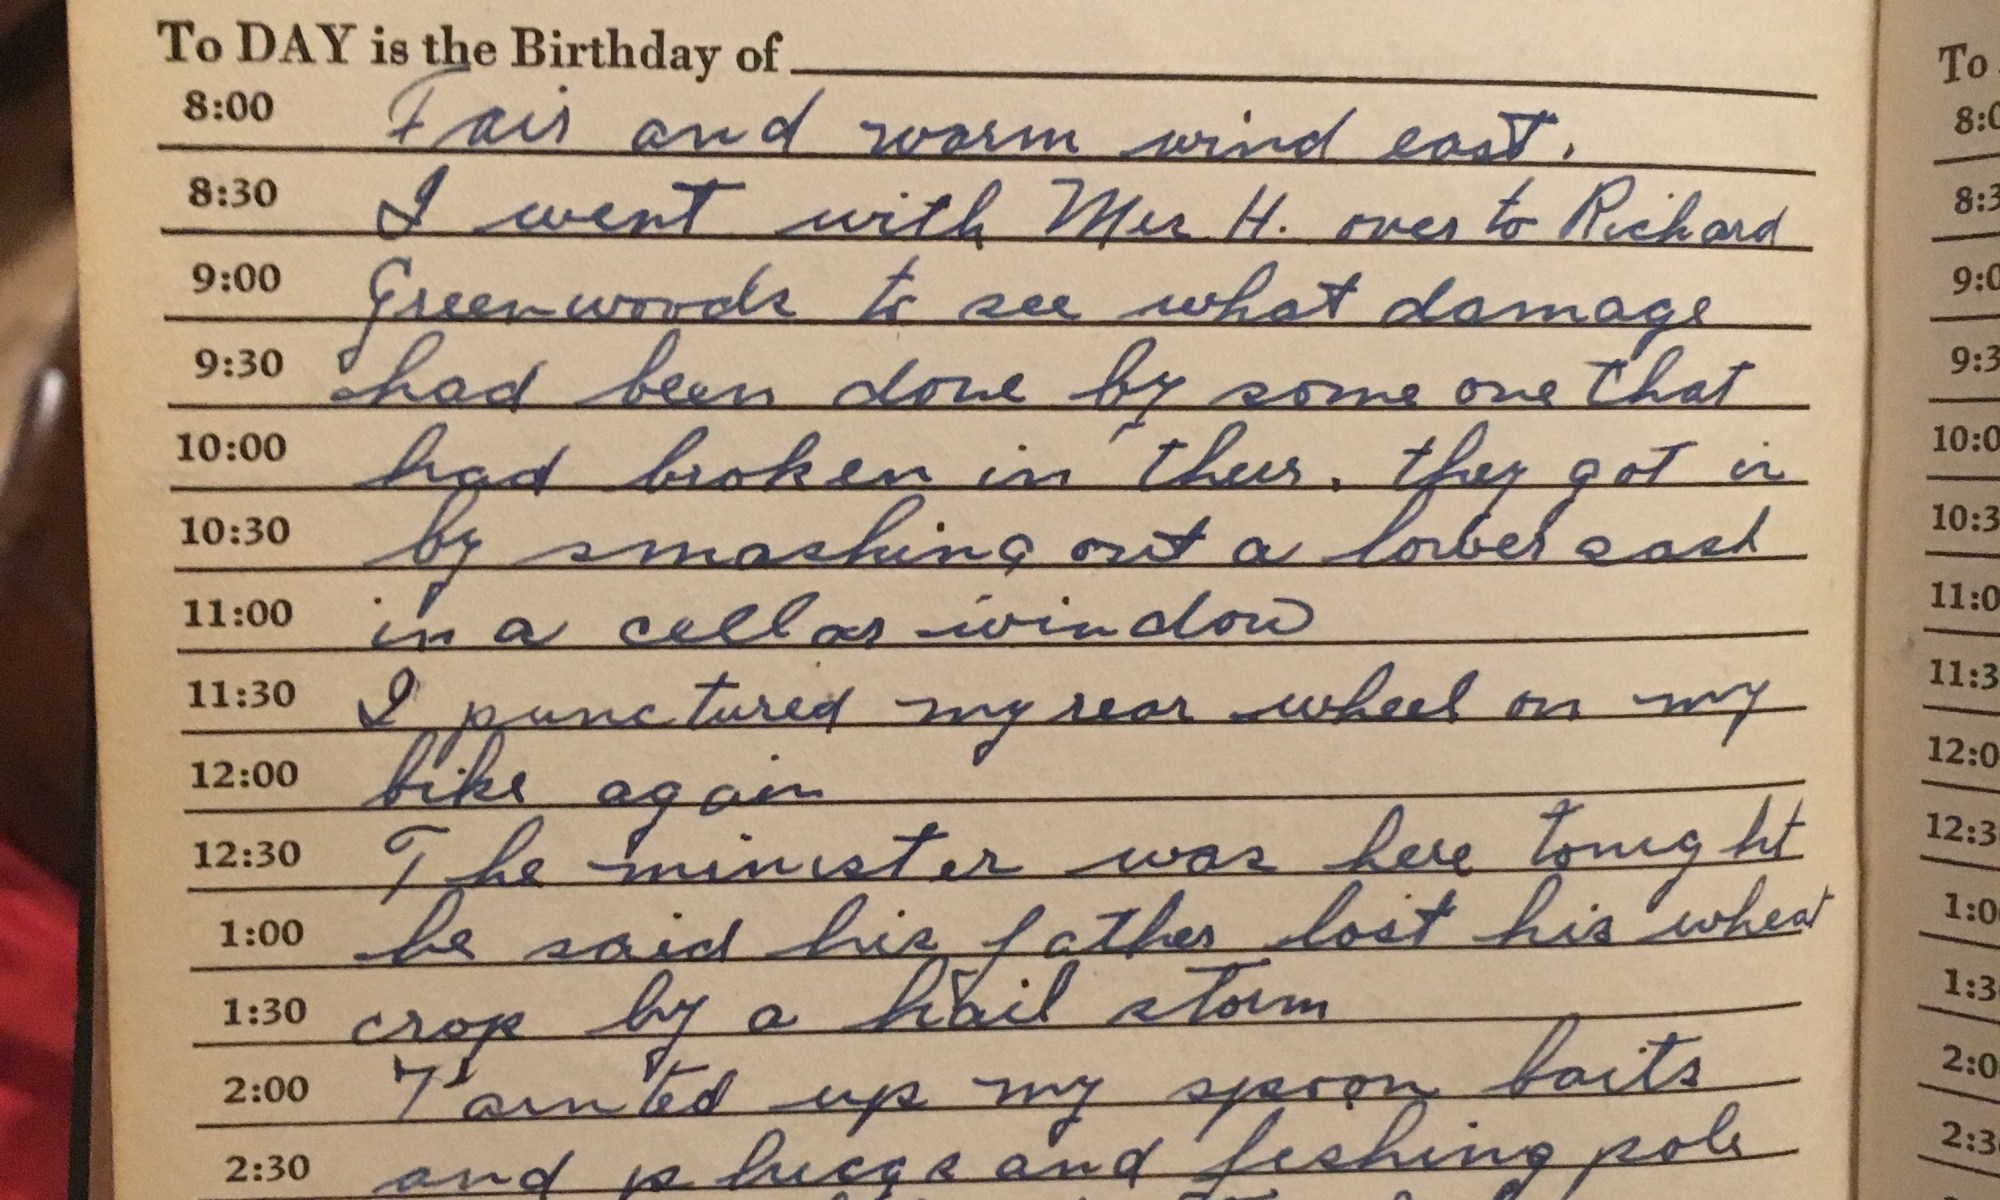 To DAY is the Birthday of
8:00 Fair and warm wind east.
8:30 I went with Mrs H. over to Richard
9:00 Greenwoods to see what damage
9:30 had been done by some one that
10:00 had broken in their. they got in
10:30 by smashing out a lower sash
11:00 in a cellar window
11:30 I punctured my rear wheel on my
12:00 bike again
12:30 The minister was here tonight
1:00 he said his father lost his wheat
1:30 crop by a hail storm
2:00 Painted up my spoon baits
2:30 and pluggs and fishing pole
To
8:0
8:3
9:0
9:3
10:0
10:3
11:0
11:3
12:0
12:3
1:0
1:3
2:0
2:3